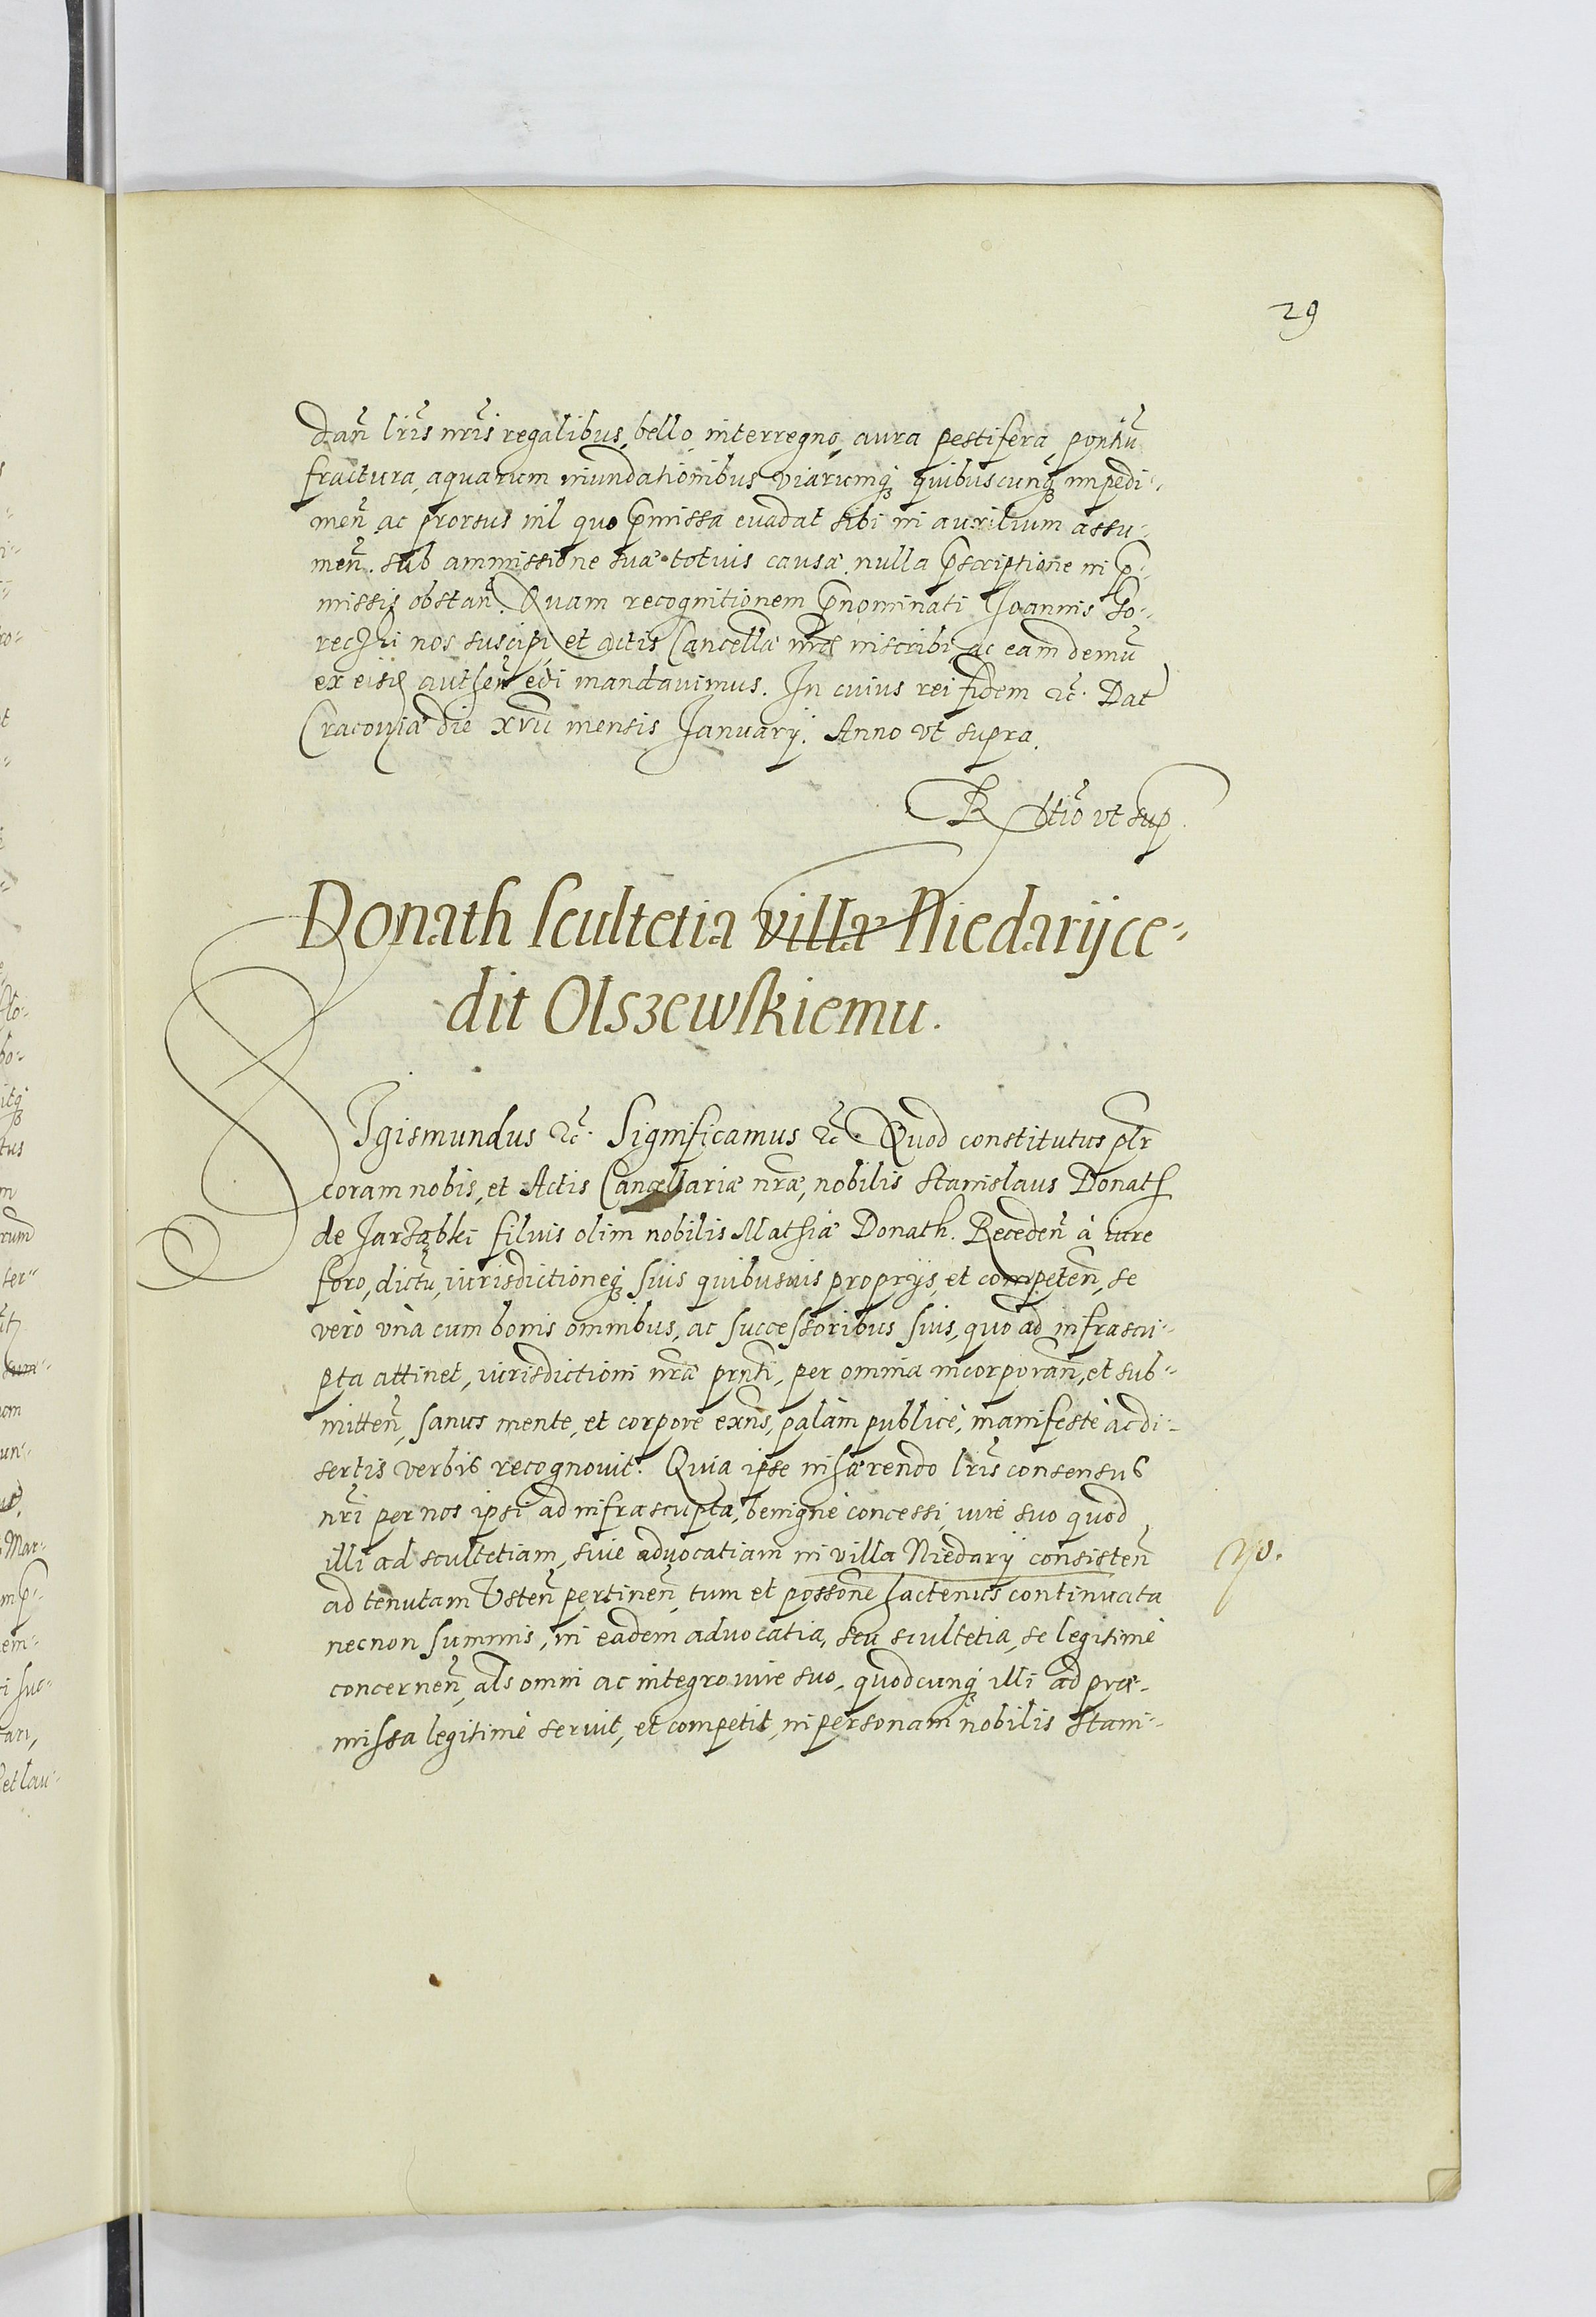 29
dan̄ lr̄is nr̄is regalibus, bello, interregno, aura pestifera, pontiū
fractura, aquarum inundationibus viarumq̣ quibuscunq̣ impedi-
men̄ ac prorsus nil quo p̄missa evadat sibi in auxilium assu-
men̄. sub ammissione suæ totius causæ. nulla p̄scriptione in p̄-
missis obstan̄. Quam recognitionem p̄nominati Joannis
nos suscipi et actis Cancellæ nr̄æ inscribi, ac eam demū
ex eisd authen̄ edi mandavimus. In cuius rei fidem &c̄. Dat
Cracoviæ die xvii mensis Januarij. Anno vt supra.
R̄ltio vt sup.
Donath scultetia villæ Niedarij ce-
dit Olszewskiemu.
Sigismundus &c̄. Significamus &c̄. Quod constitutus plr̄
coram nobis, et Actis Cancellariæ nr̄æ, nobilis Stanislaus Donath
de Jarząbki filius olim nobilis Mathiæ Donath. Receden̄ à iure
foro, dictū, iurisdictioneq̣ suis quibusvis proprijs, et competen̄, se
verò vnà cum bonis omnibus, ac successoribus suis, quo ad infrascri-
pta attinet, iurisdictioni nr̄æ prn̄ti, per omnia incorporan̄, et sub-
mitten̄, sanus mente, et corpore exn̄s, palàm publicè, manifestè ac di-
sertis verbis recognovit. Quia ipse inhærendo lr̄is consensus
nr̄i per nos ipsi ad infrascripta, benignè concessi, iure suo quod
illi ad scultetiam, sive advocatiam in villa Niedarij consisten̄
ad tenutam Vsten̄ pertinen̄, tum et possone hactenus continuata
necnon summis, in eadem advocatia, seu scultetia, se legitimè
concernen̄, als omni ac integro iure suo, quodcunq̣ illi ad præ-
missa legitimè servit, et competit, in personam nobilis Stani-